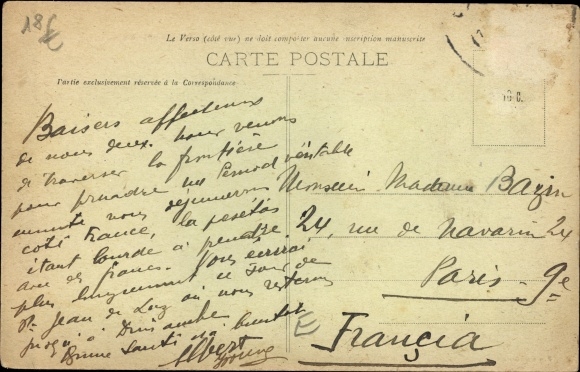 Le Verso (côté vue) ne doit comporter aucune inscription manuscrite
CARTE POSTALE
Partie exclusivement réservée à la Correspondance
Baisers affectueux
de nous deux. Nous venons
de traverser la frontière
pour prendre un Pernod véritable
ensuite nous déjeunerons
côté France, la pesetas
étant lourde à prendre
avec des francs. Vous écrirai
plus longuement ce soir de
St. Jean de Luz où nous restons
jusqu'à Dimanche
Bonne santé à bientôt
Albert
Monsieur Madame Bazin
24, rue de Navarin 24
Paris-9e
Francia
E